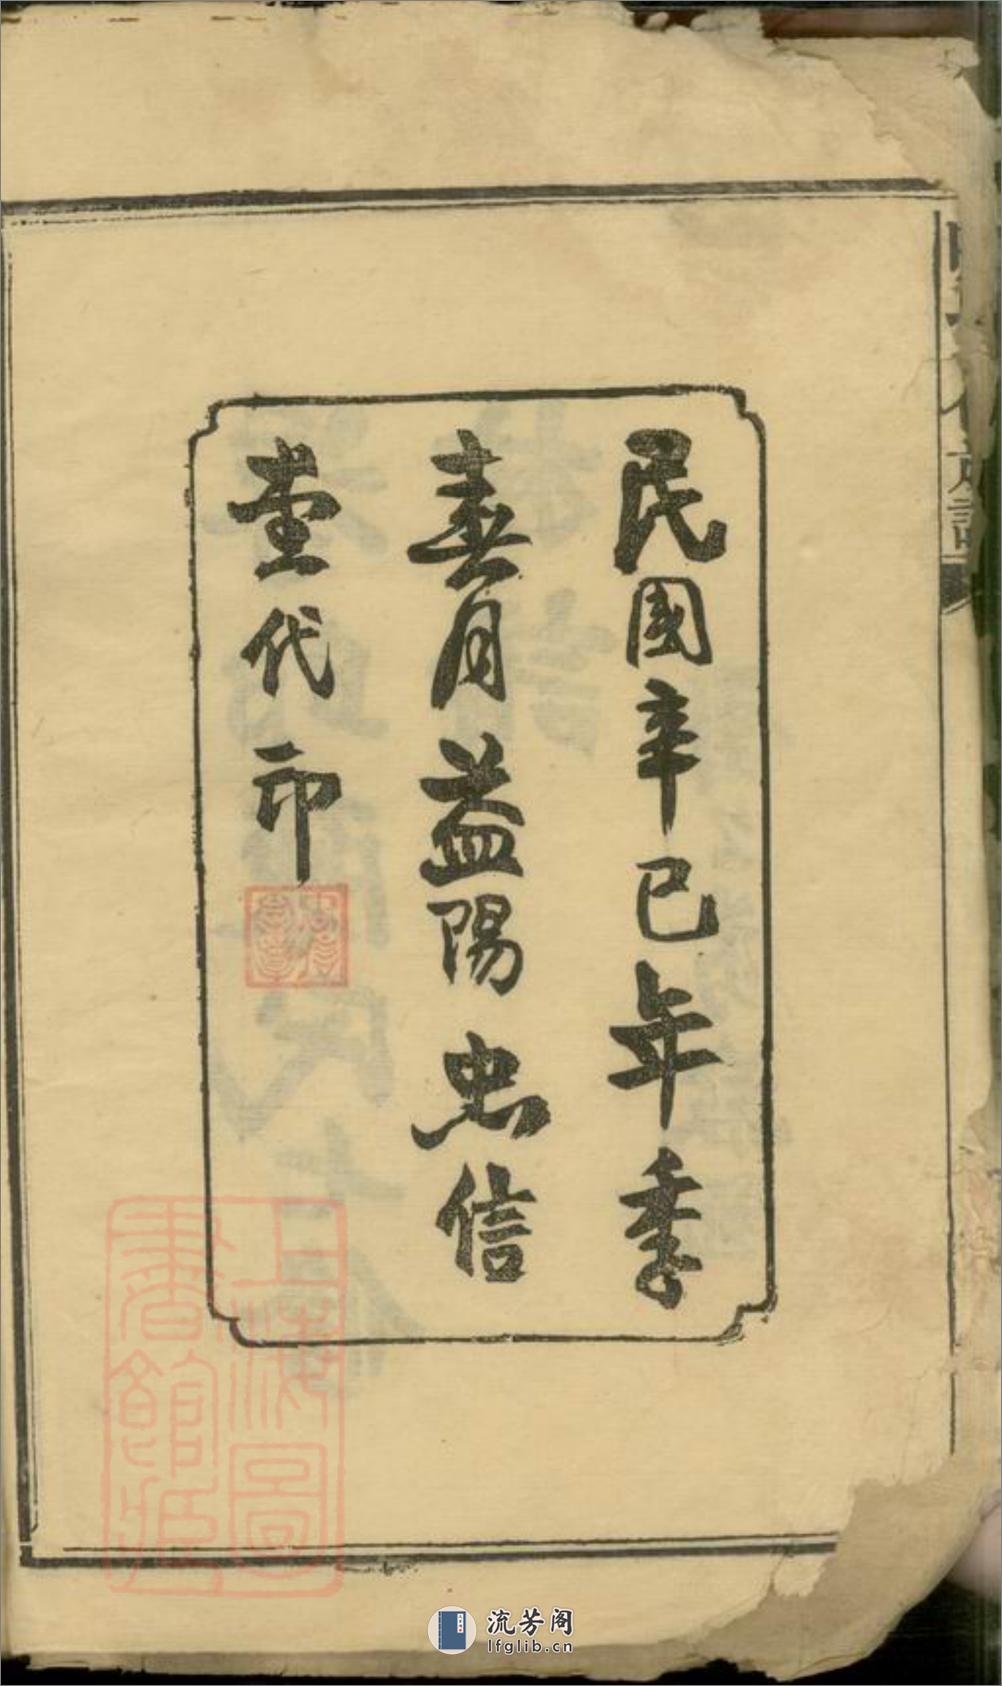 民國辛巳年季
春月益陽忠信
堂代印
忠信堂章
上海圖書館藏
流芳阁
lfglib.cn